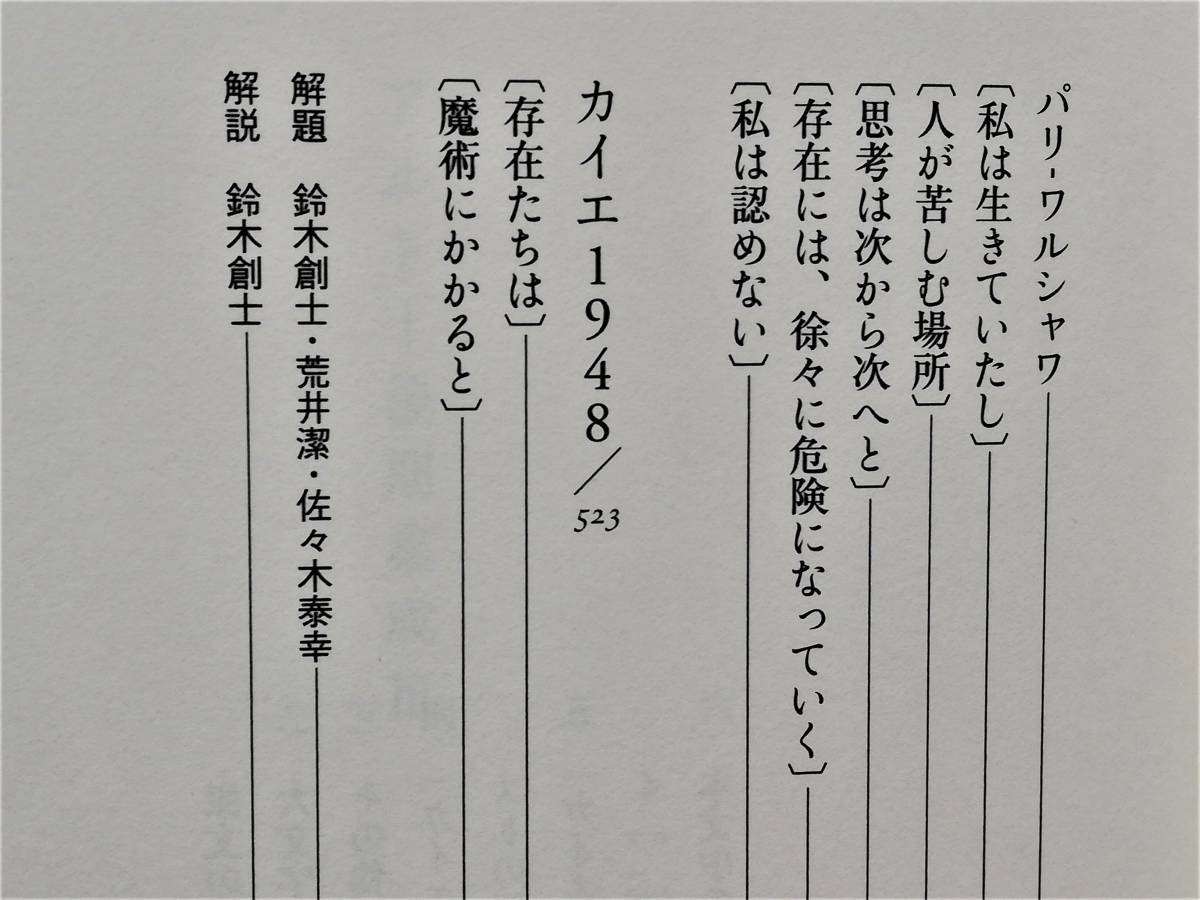 パリ-ワルシャワ
〔私は生きていたし〕
〔人が苦しむ場所〕
〔思考は次から次へと〕
〔存在には、徐々に危険になっていく〕
〔私は認めない〕
カイエ1948/523
〔存在たちは〕
〔魔術にかかると〕
解題 鈴木創士・荒井潔・佐々木泰幸
解説 鈴木創士